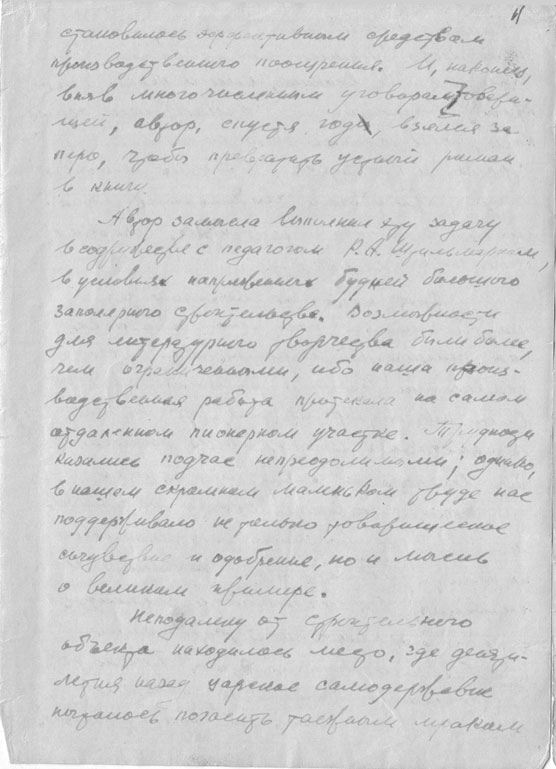 4
становилось эффективным средствам
производственного поощрения. И, наконец,
вняв многочисленным уговорам товари-
щей, автор, спустя годы, взялся за
перо, чтобы превратить устный роман
в книгу.
Автор замысла выполнил эту задачу
в содружестве с педагогом Р. А. Штильмарком,
в условиях напряженных будней большого
заполярного строительства. Возможности
для литературного творчества были более,
чем ограниченными, ибо наша произ-
водственная работа протекала на самом
отдаленном пионерном участке. Трудности
казались подчас непреодолимыми; однако,
в нашем скромном маленьком труде нас
поддерживало не только товарищеское
сочувствие и одобрение, но и мысль
о великом примере.
Неподалеку от строительного
объекта находилось место, где десяти-
летия назад царское самодержавие
пыталось погасить таежным мраком